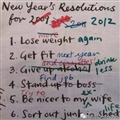 New Year's Resolutions
for 2009 2012
1. Lose weight again
2. Get fit next year
3. Give up alcohol drink less
Find job
4. Stand up to boss
Try to
5. Be nicer to my wife
6. Sort out junk in shed